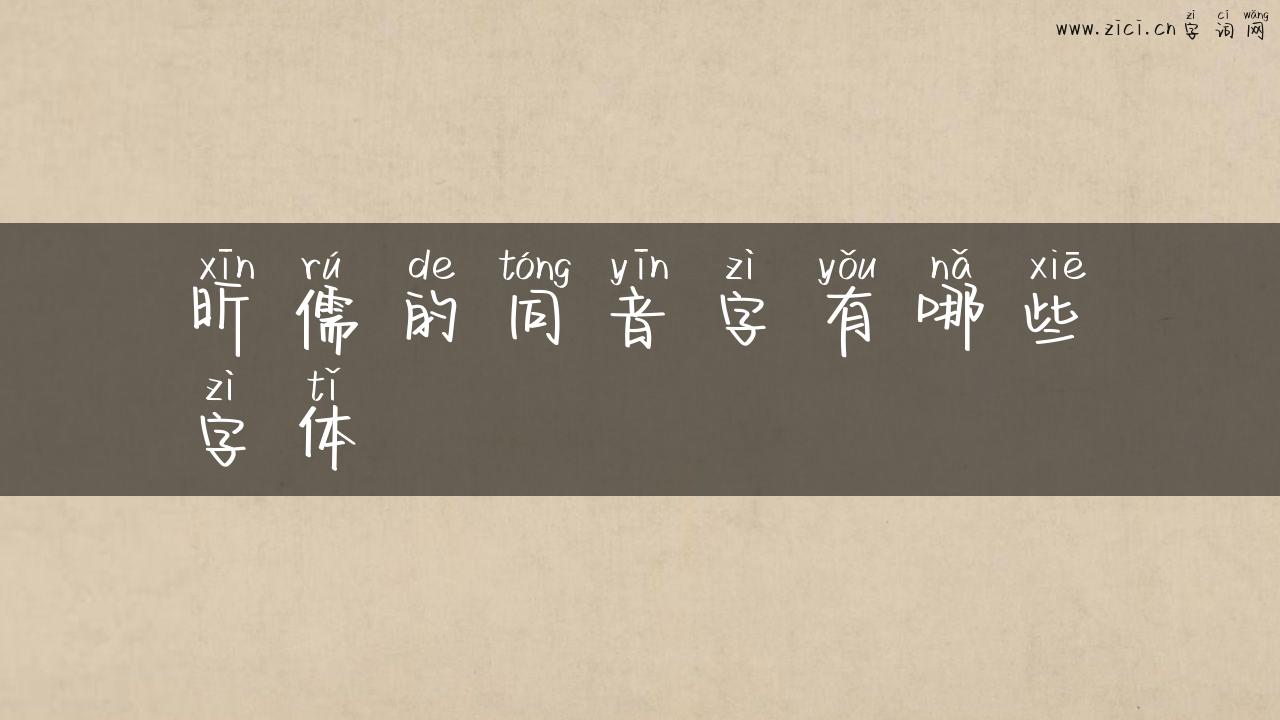 zì cí wǎng
www.zici.cn 字词网
xīn rú de tóng yīn zì yǒu nǎ xiē
昕儒的同音字有哪些
zì tǐ
字体